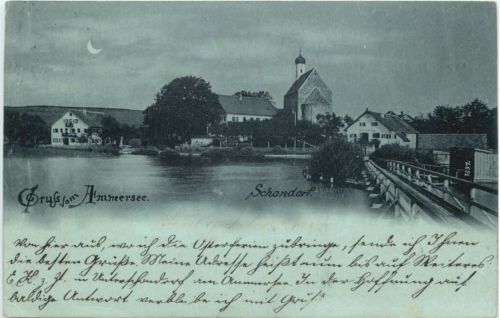 Gruss vom Ammersee.
Schondorf.
1897
Von hier aus, wo ich die Osterferien zubringe, sende ich Ihnen
die besten Grüße. Meine Adresse heißt nun bis auf Weiteres
E. H. z. Zt. in Unterschondorf am Ammersee. In der Hoffnung auf
baldige Antwort verbleibe ich mit Gruß